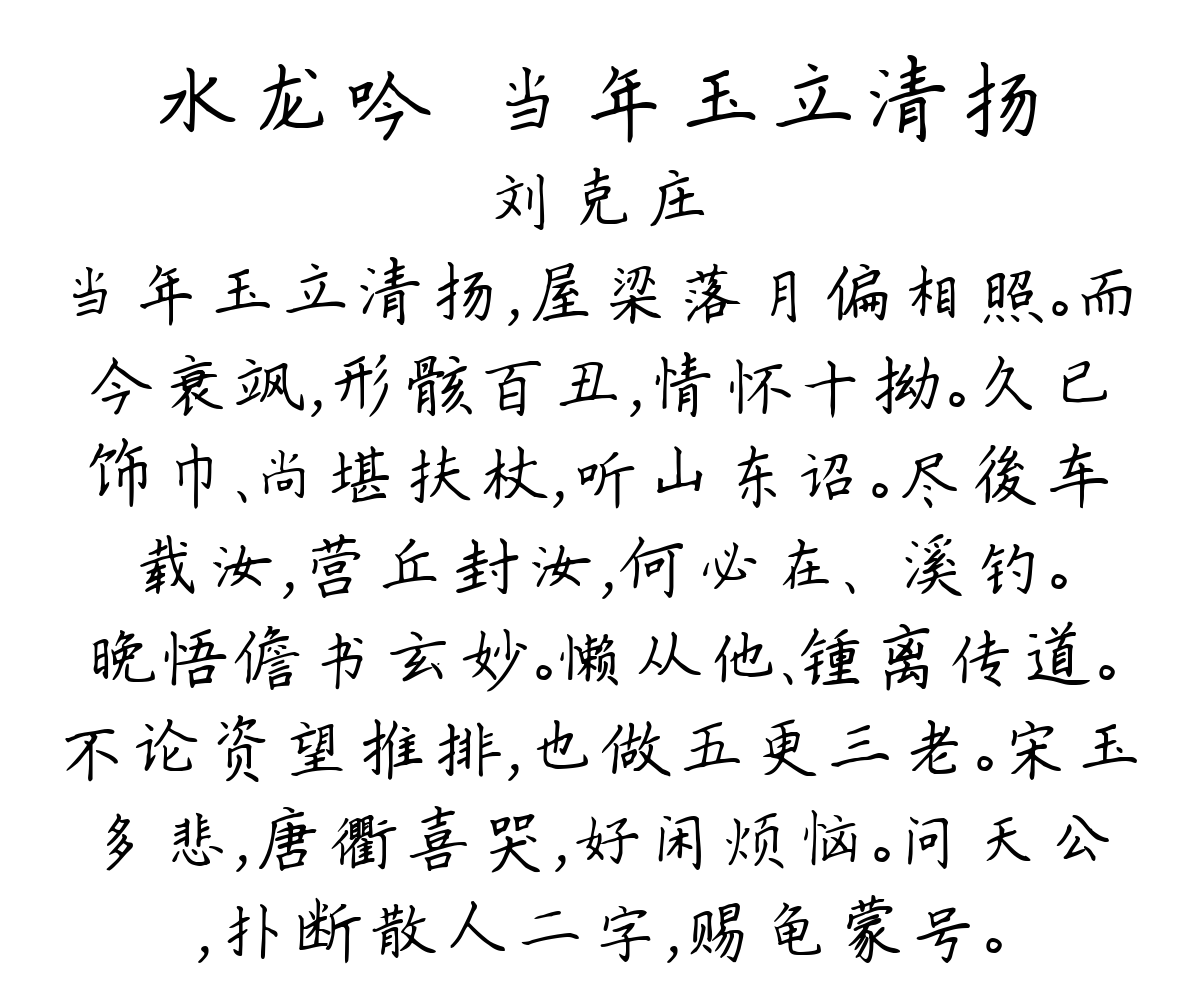 水龙吟 当年玉立清扬
刘克庄
当年玉立清扬,屋梁落月偏相照。而
今衰飒,形骸百丑,情怀十拗。久已
饰巾、尚堪扶杖,听山东诏。尽後车
载汝,营丘封汝,何必在、溪钓。
晚悟儋书玄妙。懒从他、锺离传道。
不论资望推排,也做五更三老。宋玉
多悲,唐衢喜哭,好闲烦恼。问天公
,扑断散人二字,赐龟蒙号。